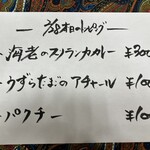 2/28本日のトッピング
・海老のスリランカカレー ¥300
・うずらたまごのアチャール ¥100
・パクチー ¥100